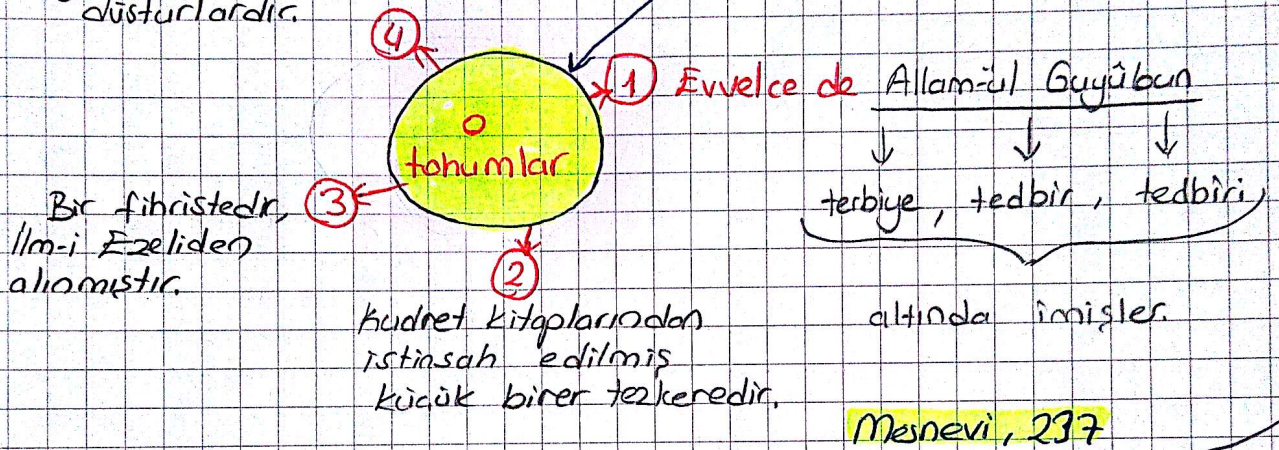 düsturlardır.
4
1 Evvelce de Allam-ül Guyûbun
O
tohumlar
terbiye, tedbir, tedbîri
altında imişler.
3
Bir fihristedir,
İlm-i Ezeliden
alınmıştır.
2
kudret kitaplarından
istinsah edilmiş
küçük birer tezkeredir.
Mesnevi, 237